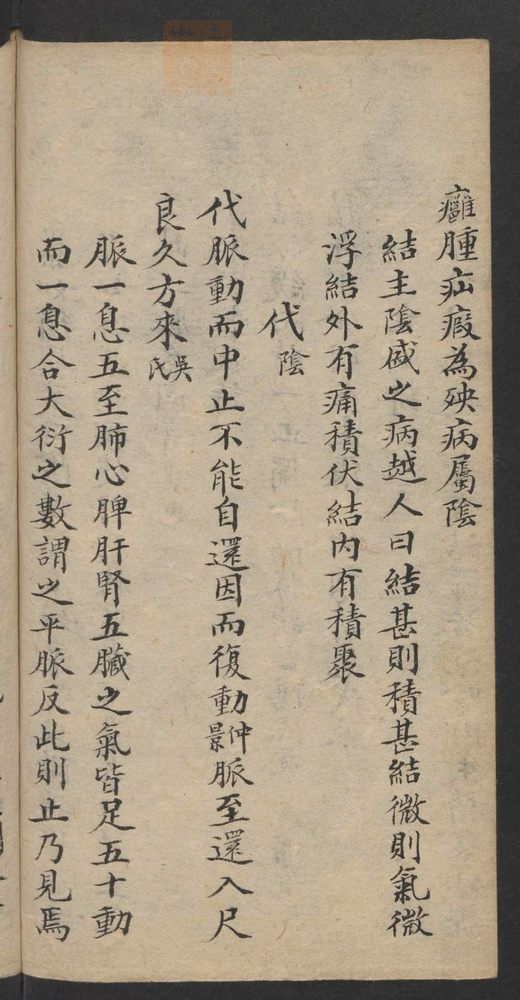 癰腫疝瘕為殃病屬陰
結主陰盛之病越人曰結甚則積甚結微則氣微
浮結外有痛積伏結内有積聚
代陰
代脈動而中止不能自還因而復動仲景脈至還入尺
良久方來吳氏
脈一息五至肺心脾肝腎五臟之氣皆足五十動
而一息合大衍之數謂之平脈反此則止乃見焉